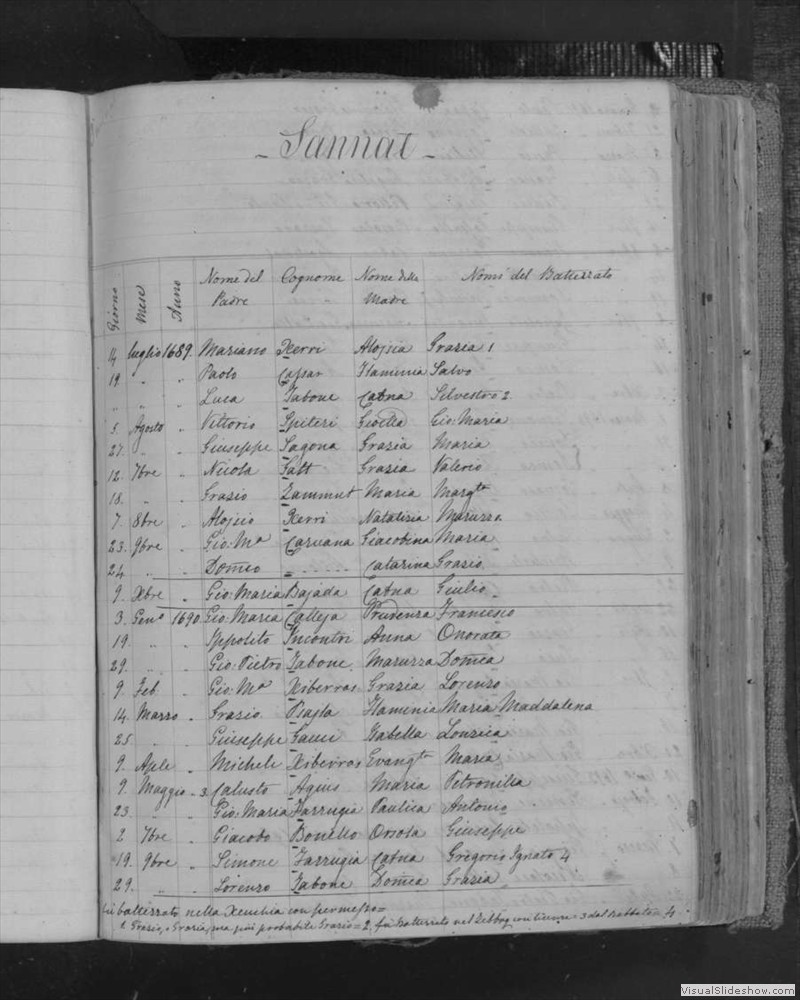 - Sannat -
Giorno Mese Anno Nome del Padre Cognome Nome della Madre Nomi del Battezzato
14 Luglio 1689. Mariano Xerri Aloysia Grazia 1
19. " " Paolo Cassar Flaminia Salvo
" " " Luca Tabone Catna Silvestro 2
5. Agosto " Vittorio Spiteri Gio: Maria
27. " " Giuseppe Sagona Grazia Maria
12. 7bre " Nicola Galt Grazia Valerio
18. " " Grazio Zammut Maria Margta
7. 8bre " Alojsio Xerri Natalizia Maruzza
23. 9bre " Gio: Ma Caruana Giacobina Maria
24. " " Domco " Catarina Grazio
9. Xbre " Gio: Maria Bajada Catna Giulio
3. Geno 1690. Gio: Maria Calleja Prudenza Francesco
19. " " Ippolito Incontri Anna Onorata
29. " " Gio: Pietro Tabone Maruzza Domca
9. Feb " Gio: Ma Xiberras Grazia Lorenzo
14. Marzo " Grazio Psajla Flaminia Maria Maddalena
25 " " Giuseppe Isabella
9. Aple " Michele Xiberras Evangta Maria
9. Maggio " 3 Calisto Agius Maria Petronilla
23. " " Gio: Maria Farrugia Paulica Antonio
2 7bre " Giacobo Bonello Orsola Giuseppe
19. 9bre " Simone Farrugia Catna Gregorio Ignato 4
29. " " Lorenzo Tabone Domca Grazia
fu battezzato nella con permesso =
1. Grazio, o Grazia, ma più probabile Grazio = 2. fu battezzato nel Zebbug con licenza = 3 dal Rabbato = 4
VisualSlideshow.com